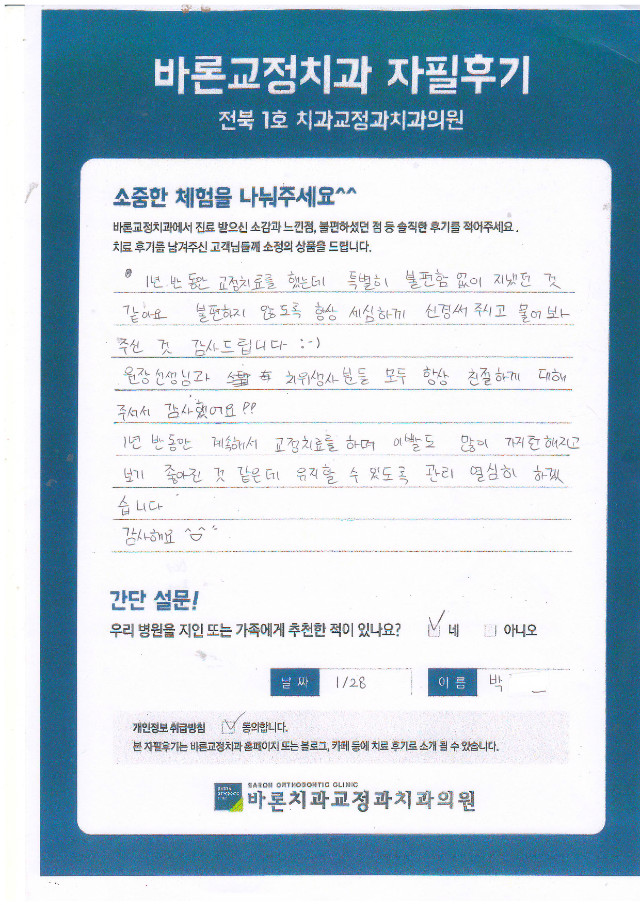 바론교정치과 자필후기
전북 1호 치과교정과치과의원
소중한 체험을 나눠주세요^^
바론교정치과에서 진료 받으신 소감과 느낀점, 불편하셨던 점 등 솔직한 후기를 적어주세요.
치료 후기를 남겨주신 고객님들께 소정의 상품을 드립니다.
1년 반 동안 교정치료를 했는데 특별히 불편함 없이 지냈던 것
같아요 불편하지 않도록 항상 세심하게 신경써 주시고 물어봐
주신 것 감사드립니다 :-)
원장선생님과 치위생사분들 모두 항상 친절하게 대해
주셔서 감사했어요!!
1년 반동안 계속해서 교정치료를 하며 이빨도 많이 가지런해지고
보기 좋아진 것 같은데 유지할 수 있도록 관리 열심히 하겠
습니다
감사해요 ^△^
간단 설문!
우리 병원을 지인 또는 가족에게 추천한 적이 있나요? 네 아니오
날짜 1/28 이름 박
개인정보 취급방침 동의합니다.
본 자필후기는 바론교정치과 홈페이지 또는 블로그, 카페 등에 치료 후기로 소개 될 수 있습니다.
BARON ORTHODONTIC CLINIC
바론치과교정과치과의원